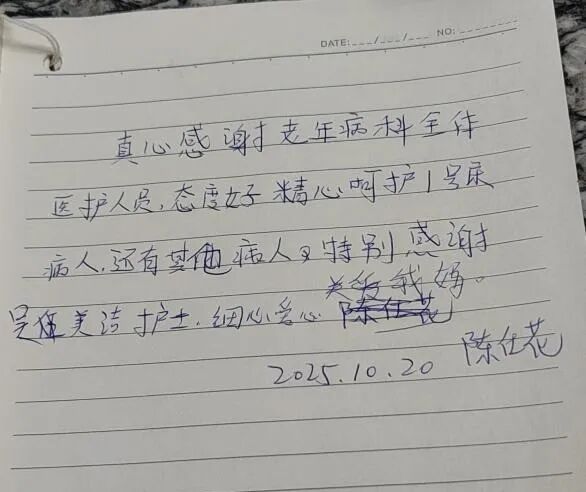 DATE:___/___/___ NO:______
真心感谢老年病科全体
医护人员，态度好 精心呵护1号床
病人，还有其他病人 特别感谢
美洁护士，细心爱心 关爱我妈。
2025.10.20 陈仕花